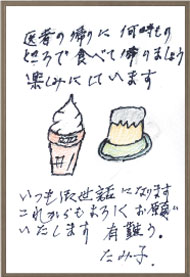 医者の帰りに 何時もの
ところで食べて帰りましょう
楽しみにしています
いつもお世話になります
これからもよろしくお願い
いたします 有難う。
たみ子